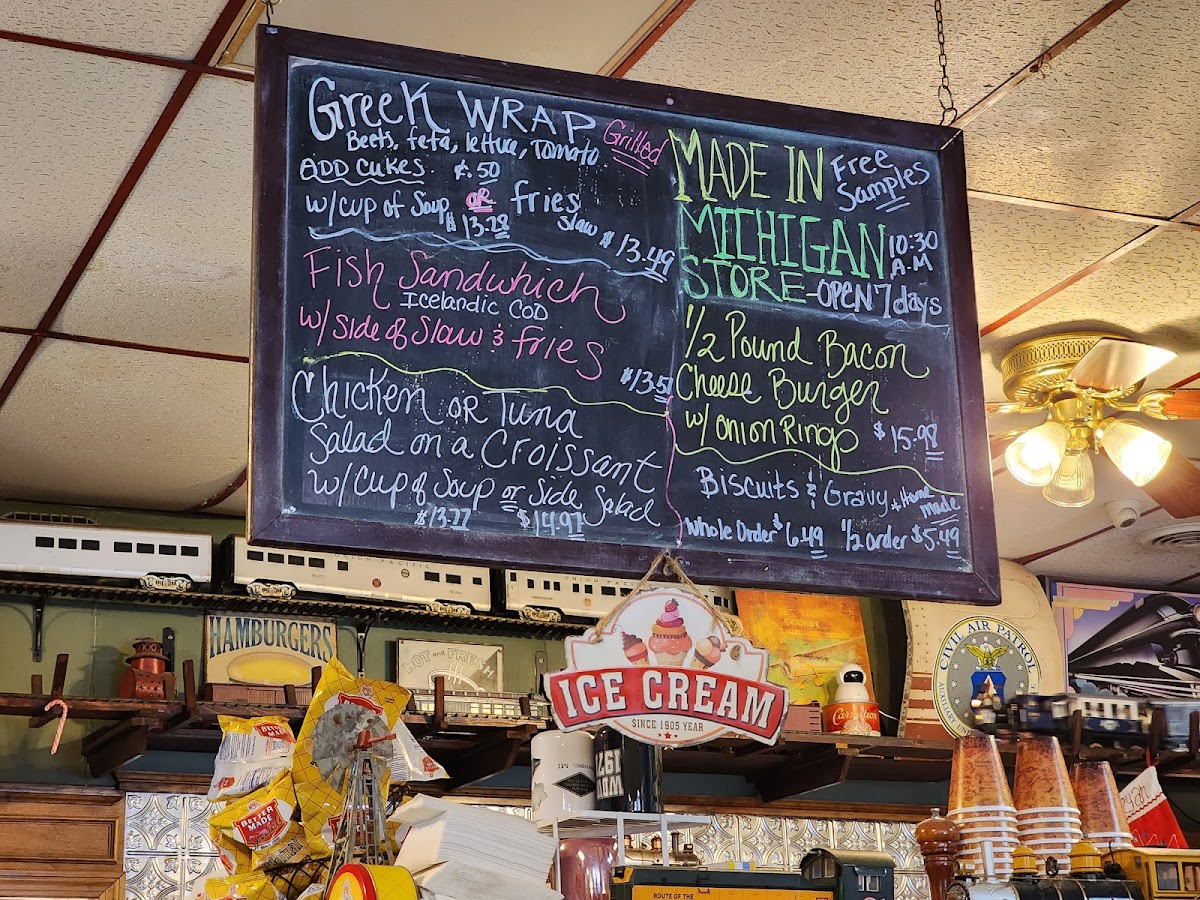 Greek WRAP
Grilled
Beets, feta, lettuce, Tomato
ADD CUKES. .50
w/cup of Soup OR fries
$13.28 slaw $13.49
Fish Sandwhich
Icelandic COD
w/ side of Slaw & fries
Chicken OR Tuna
Salad on a Croissant
w/ Cup of Soup or Side Salad
$13.27 $14.97
MADE IN
Free
Samples
MICHIGAN
10:30
A.M
STORE - OPEN 7 days
1/2 Pound Bacon
Cheese Burger
w/ Onion Rings $15.98
Biscuits & Gravy Home
made
Whole Order $6.49 1/2 order $5.49
UNION PACIFIC
HAMBURGERS
HOT and FRESH
ICE CREAM
SINCE 1905 YEAR
CIVIL AIR PATROL
AUXILIARY
Carnation
BETTER
MADE
BETTER
MADE
ROUTE OF THE